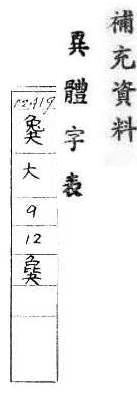 補充資料
異體字表
02419.
大
9
12